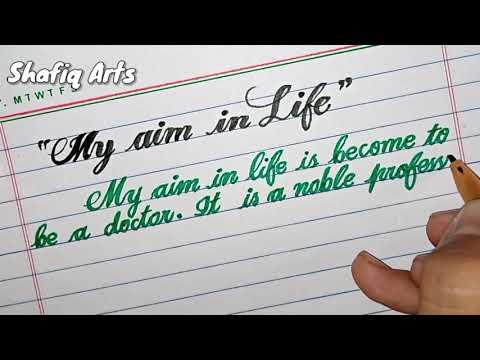 Shafiq Arts
MTWTF
"My aim in Life"
My aim in life is become to
be a doctor. It is a noble profess